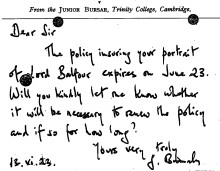 From the JUNIOR BURSAR, Trinity College, Cambridge.
Dear Sir
The policy insuring your portrait
of Lord Balfour expires on June 23.
Will you kindly let me know whether
it will be necessary to renew the policy
and if so for how long?
Yours very truly
13.vi.23. J.